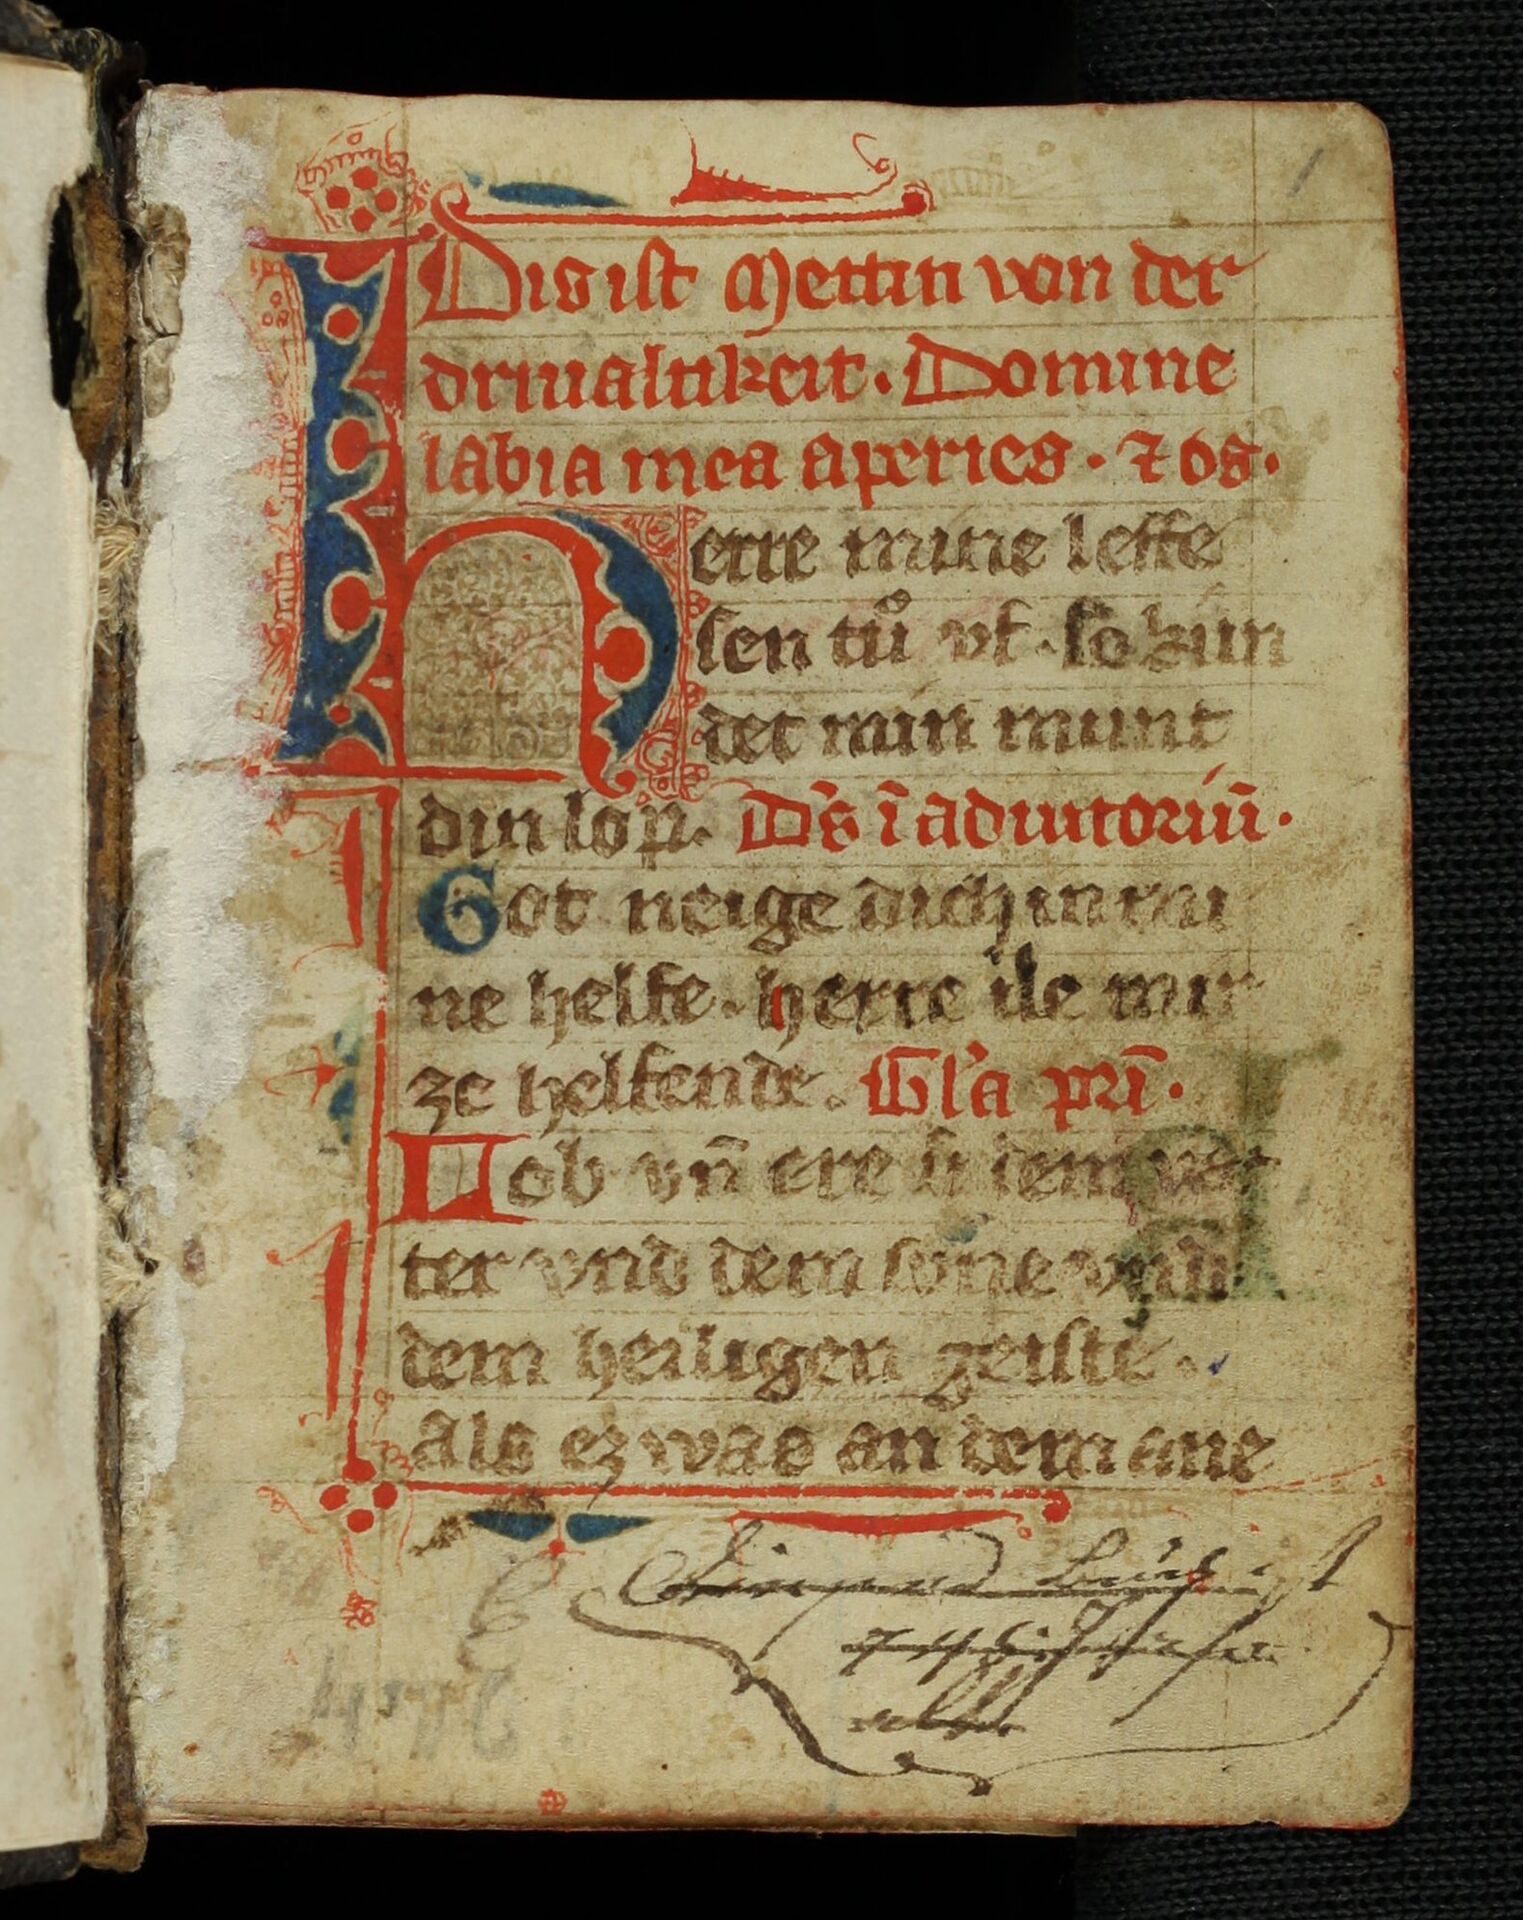 1
Dis ist Mettin von der
driualtikeit. Domine
labia mea aperies. ⁊ os.
Herre mine leffe
sen tuͦ vf. so kún
det min munt
din lop. Ds̄ ī adiutoriū.
Got neige dich in mi
ne helfe. herre ile mir
ze helfende. Gl'a pri̅.
Lob vn̄ ere si dem va
ter vnd dem sune vnd
dem heiligen geiste.
Als ez was an dem ane